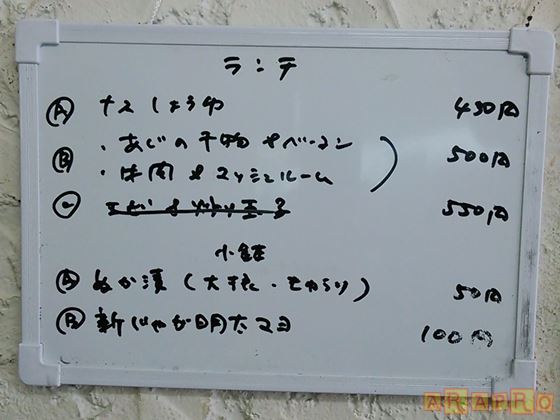 ランチ
Ⓐ ナスしょうゆ 450円
Ⓑ ・あじの干物&ベーコン
・牛肉&マッシュルーム 500円
Ⓒ エビ&ヤリイカ 550円
小鉢
Ⓐ ぬか漬(大根・きゅうり) 50円
Ⓑ 新じゃが明太マヨ 100円
ARAPRO